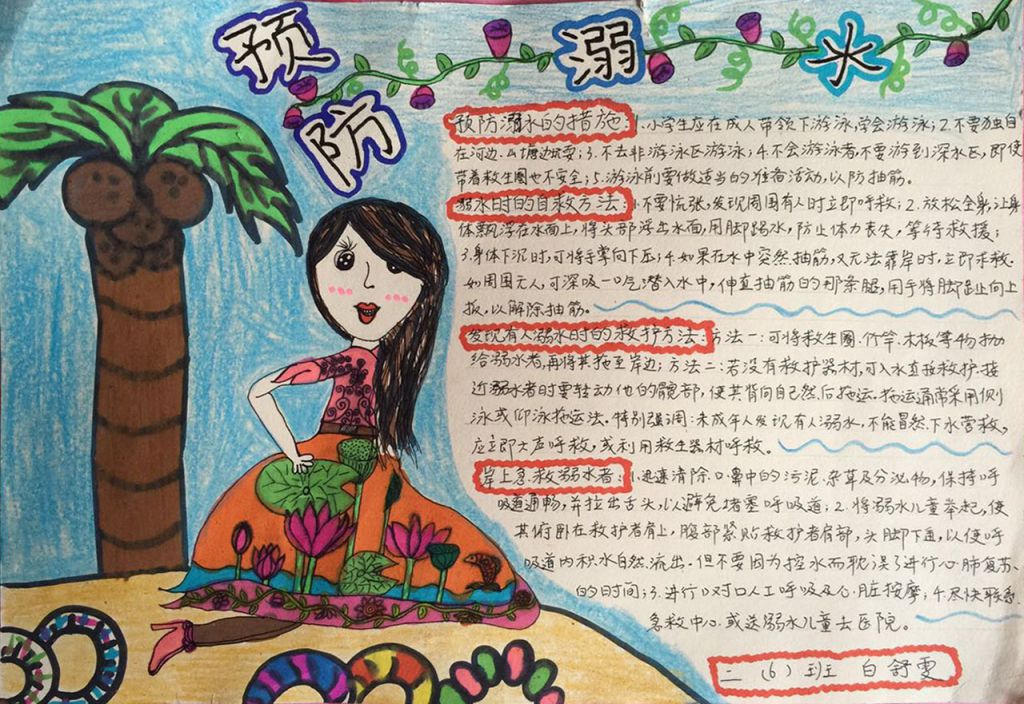 预防溺水
预防溺水的措施:1.小学生应在成人带领下游泳,学会游泳;2.不要独自
在河边、山塘边玩耍;3.不去非游泳区游泳;4.不会游泳者,不要游到深水区,即使
带着救生圈也不安全;5.游泳前要做适当的准备活动,以防抽筋。
溺水时的自救方法:1.不要慌张,发现周围有人时立即呼救;2.放松全身,让身
体飘浮在水面上,将头部浮出水面,用脚踢水,防止体力丧失,等待救援;
3.身体下沉时,可将手掌向下压;4.如果在水中突然抽筋,又无法靠岸时,立即求救.
如周围无人,可深吸一口气潜入水中,伸直抽筋的那条腿,用手将脚趾向上
扳,以解除抽筋。
发现有人溺水时的救护方法:方法一:可将救生圈.竹竿.木板等物抛
给溺水者,再将其拖至岸边;方法二:若没有救护器材,可入水直接救护.接
近溺水者时要转动他的髋部,使其背向自己然后拖运.拖运通常采用侧
泳或仰泳拖运法.特别强调:未成年人发现有人溺水,不能冒然下水营救,
应立即大声呼救,或利用救生器材呼救。
岸上急救溺水者:1.迅速清除口.鼻中的污泥.杂草及分泌物,保持呼
吸道通畅,并拉出舌头,以避免堵塞呼吸道;2.将溺水儿童举起,使
其俯卧在救护者肩上,腹部紧贴救护者肩部,头脚下垂,以使呼
吸道内积水自然流出.但不要因为控水而耽误了进行心肺复苏
的时间;3.进行口对口人工呼吸及心脏按摩;4.尽快联系
急救中心或送溺水儿童去医院。
二(6)班 白舒雯